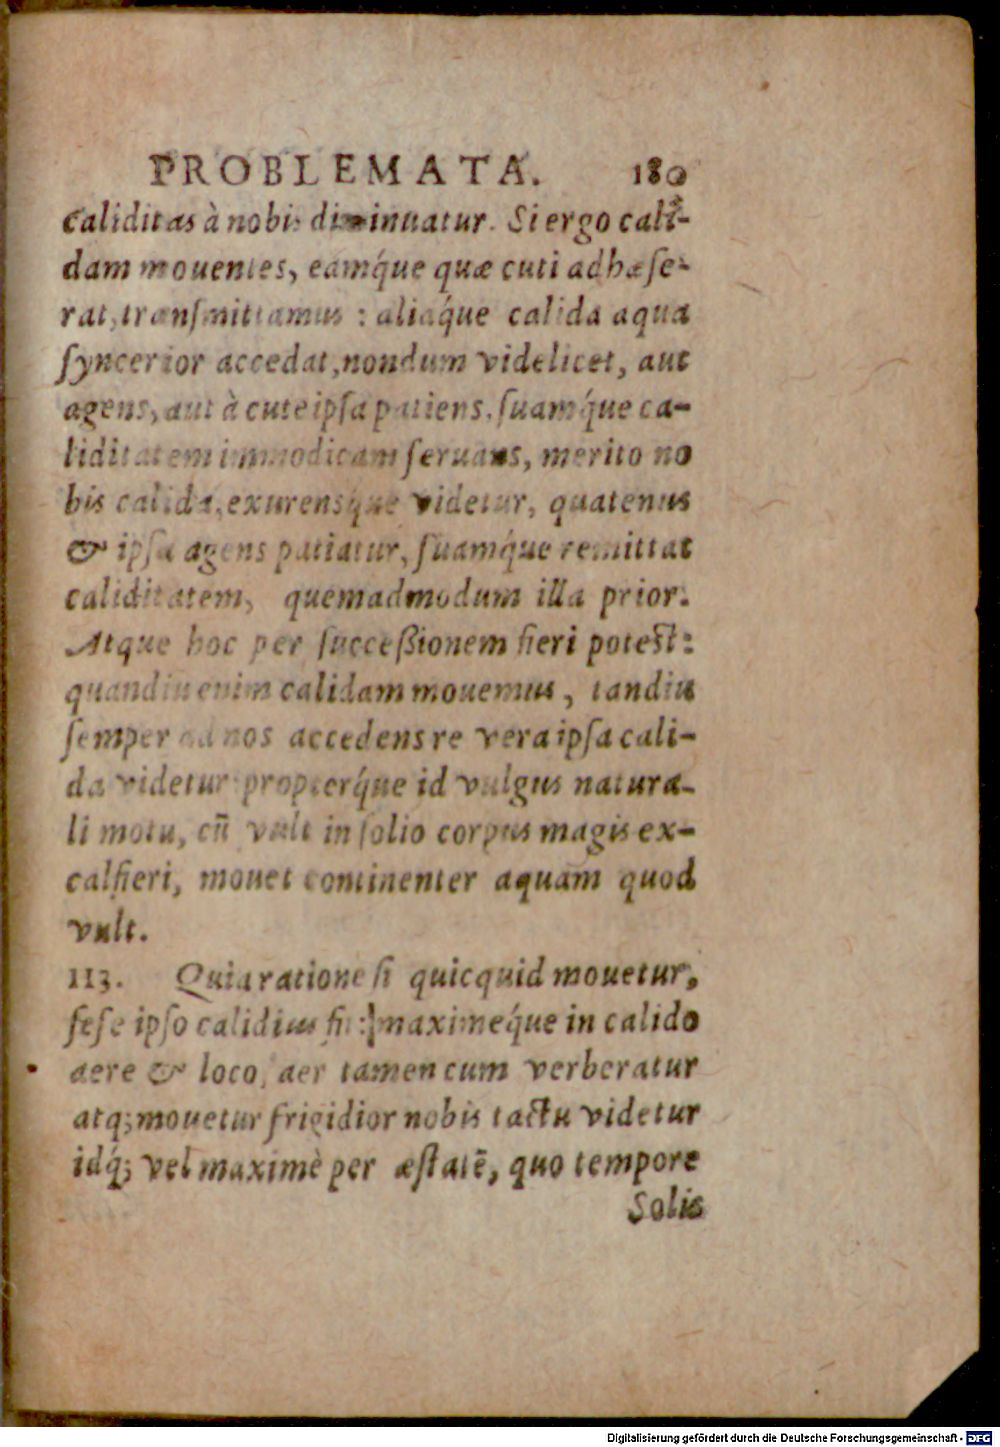 PROBLEMATA. 180
caliditas à nobis diminuatur. Si ergo cali-
dam mouentes, eamq́ue quæ cuti adhæse-
rat, transmittamus : aliaq́ue calida aqua
syncerior accedat, nondum videlicet, aut
agens, aut à cute ipsa patiens, suamq́ue ca-
liditatem immodicam seruans, merito no
bis calida, exurensq́ue videtur, quatenus
& ipsa agens patiatur, suamq́ue remittat
caliditatem, quemadmodum illa prior.
Atque hoc per succeßionem fieri potest:
quandiu enim calidam mouemus, tandiu
semper ad nos accedens re vera ipsa cali-
da videtur propterq́ue id vulgus natura-
li motu, cũ vult in solio corpus magis ex-
calfieri, mouet continenter aquam quod
vult.
113. Quia ratione si quicquid mouetur,
sese ipso calidius fit: maximeq́ue in calido
aere & loco, aer tamen cum verberatur
atq; mouetur frigidior nobis tactu videtur
idq́; vel maximè per æstatẽ, quo tempore
Solis
Digitalisierung gefördert durch die Deutsche Forschungsgemeinschaft - DFG